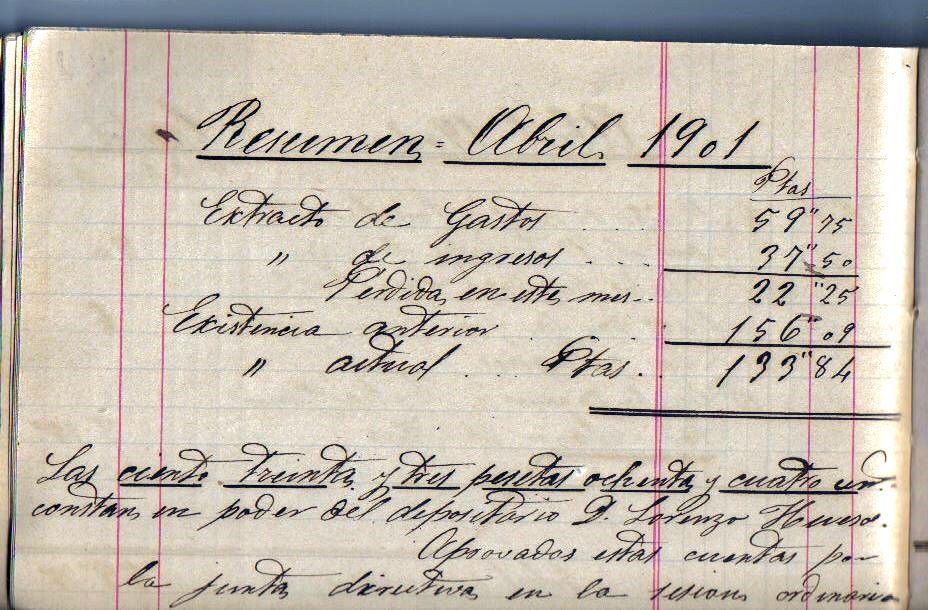 Resumen = Abril 1901
Ptas
Extracto de Gastos . . . 59"75
" de ingresos . . . 37"50
Perdida en este mes . . 22"25
Existencia anterior . . . 156"09
" actual . . . Ptas . 133"84
Las ciento treinta y tres pesetas ochenta y cuatro
constan en poder del depositario D. Lorenzo Hueso.
Aprovados estas cuentas por
la junta directiva en la sesion ordinaria